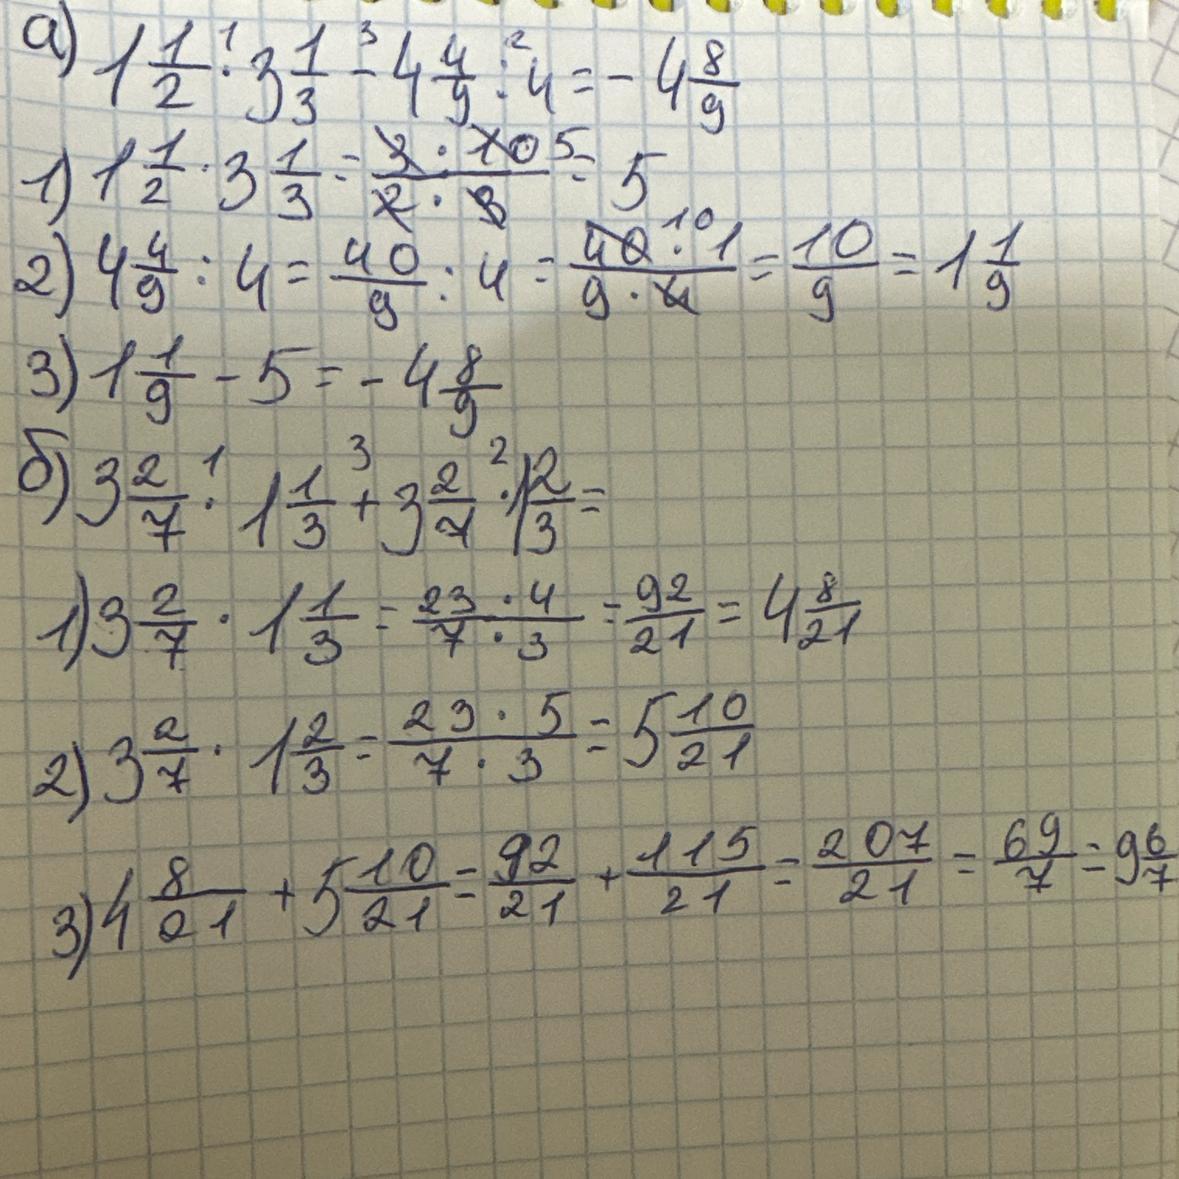 а) 1 1/2 · 3 1/3 - 4 4/9 : 4 = - 4 8/9
1) 1 1/2 · 3 1/3 = 3 · 10 5 / 2 · 3 = 5
2) 4 4/9 : 4 = 40/9 : 4 = 40 10 · 1 / 9 · 4 = 10/9 = 1 1/9
3) 1 1/9 - 5 = - 4 8/9
б) 3 2/7 · 1 1/3 + 3 2/7 · 1 2/3 =
1) 3 2/7 · 1 1/3 = 23 · 4 / 7 · 3 = 92/21 = 4 8/21
2) 3 2/7 · 1 2/3 = 23 · 5 / 7 · 3 = 5 10/21
3) 4 8/21 + 5 10/21 = 92/21 + 115/21 = 207/21 = 69/7 = 9 6/7